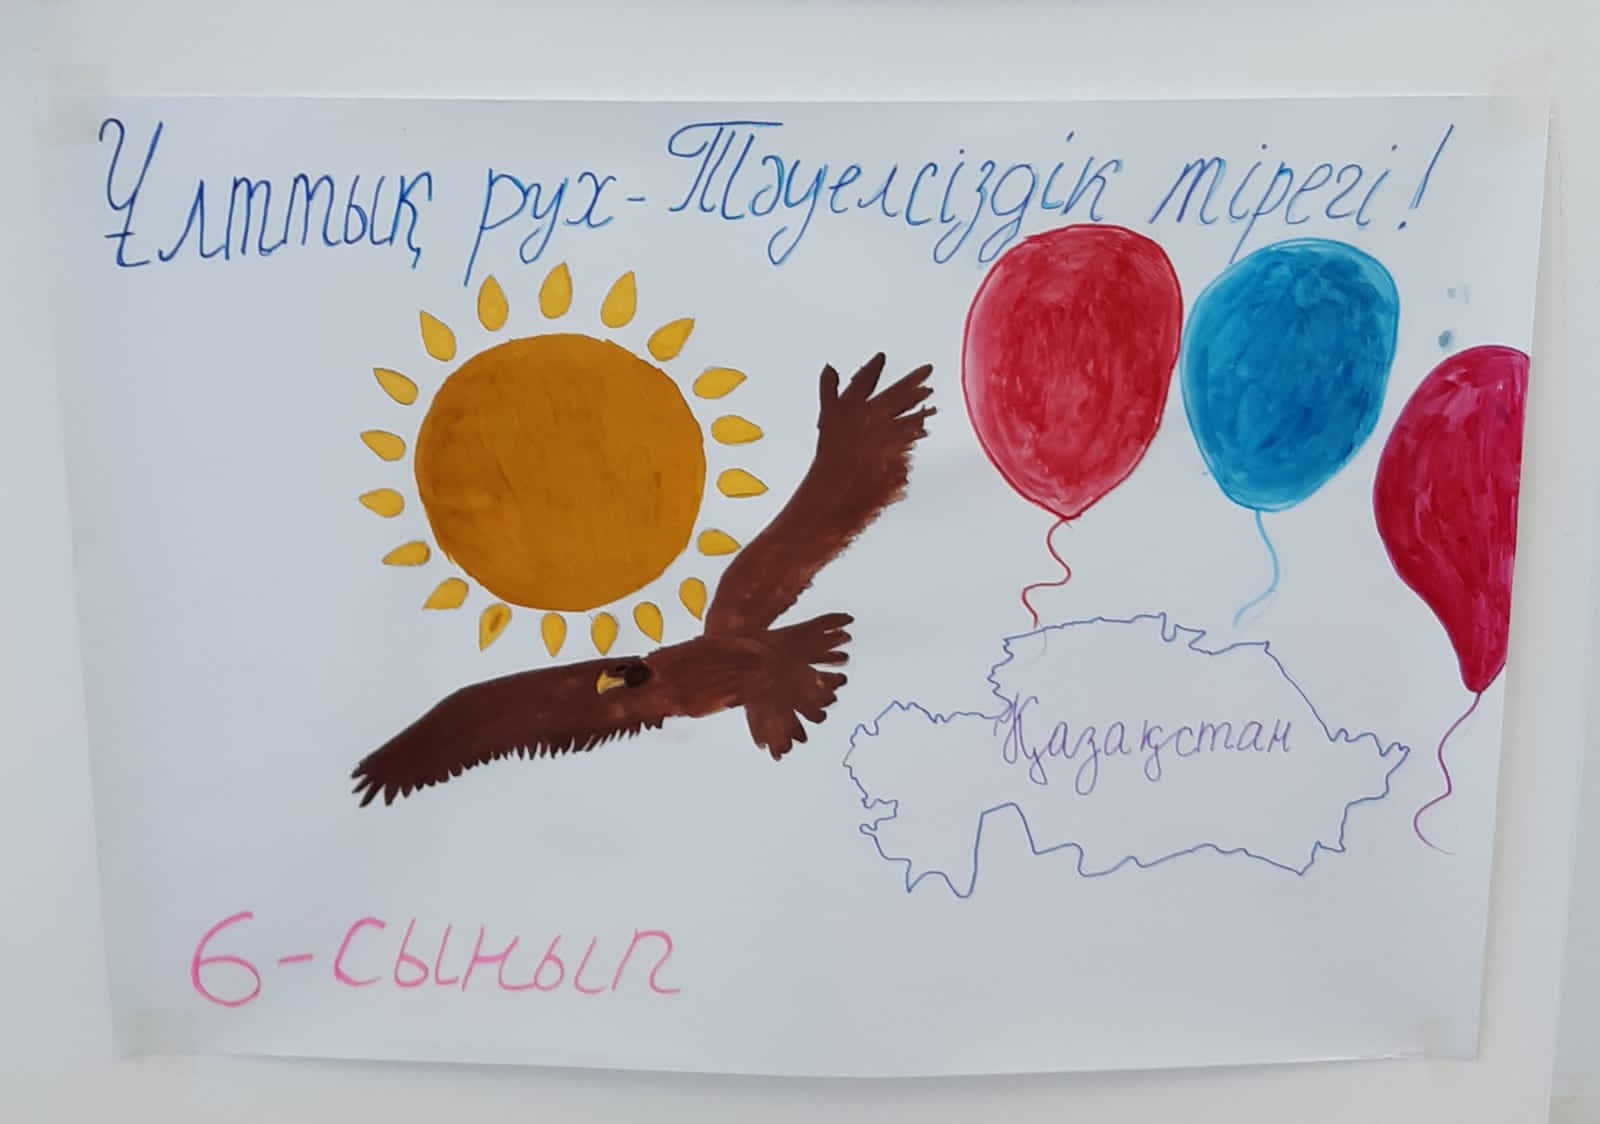 Ұлттық рух-Тәуелсіздік тірегі!
Қазақстан
6-сынып